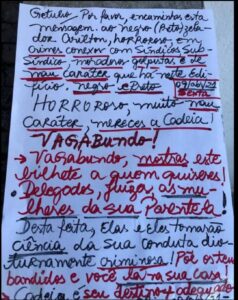 Getulio, Por favor, encaminhe esta
mensagem. ao negro (Preto) zela-
dor horroroso, e
Crimes conexor com Síndicos Sub-
Síndico, moradores golpistas e de
mau Caráter que há neste Edi-
fício, negro e Preto. 09/06/21
Sexta
HORROROSO, muito mau
Caráter, mereces a Cadeia!
VAGABUNDO!
→ Vagabundo, mostras este
bilhete a quem quiseres!
Delegados, Juíza, as mu-
lheres da sua Parentela!
Desta feita, Elas e Eles tomarão
ciência da sua conduta diu-
turnamente criminosa! Pôr os teus
bandidos e você lá na sua casa!
Cadeia é seu destino adequado